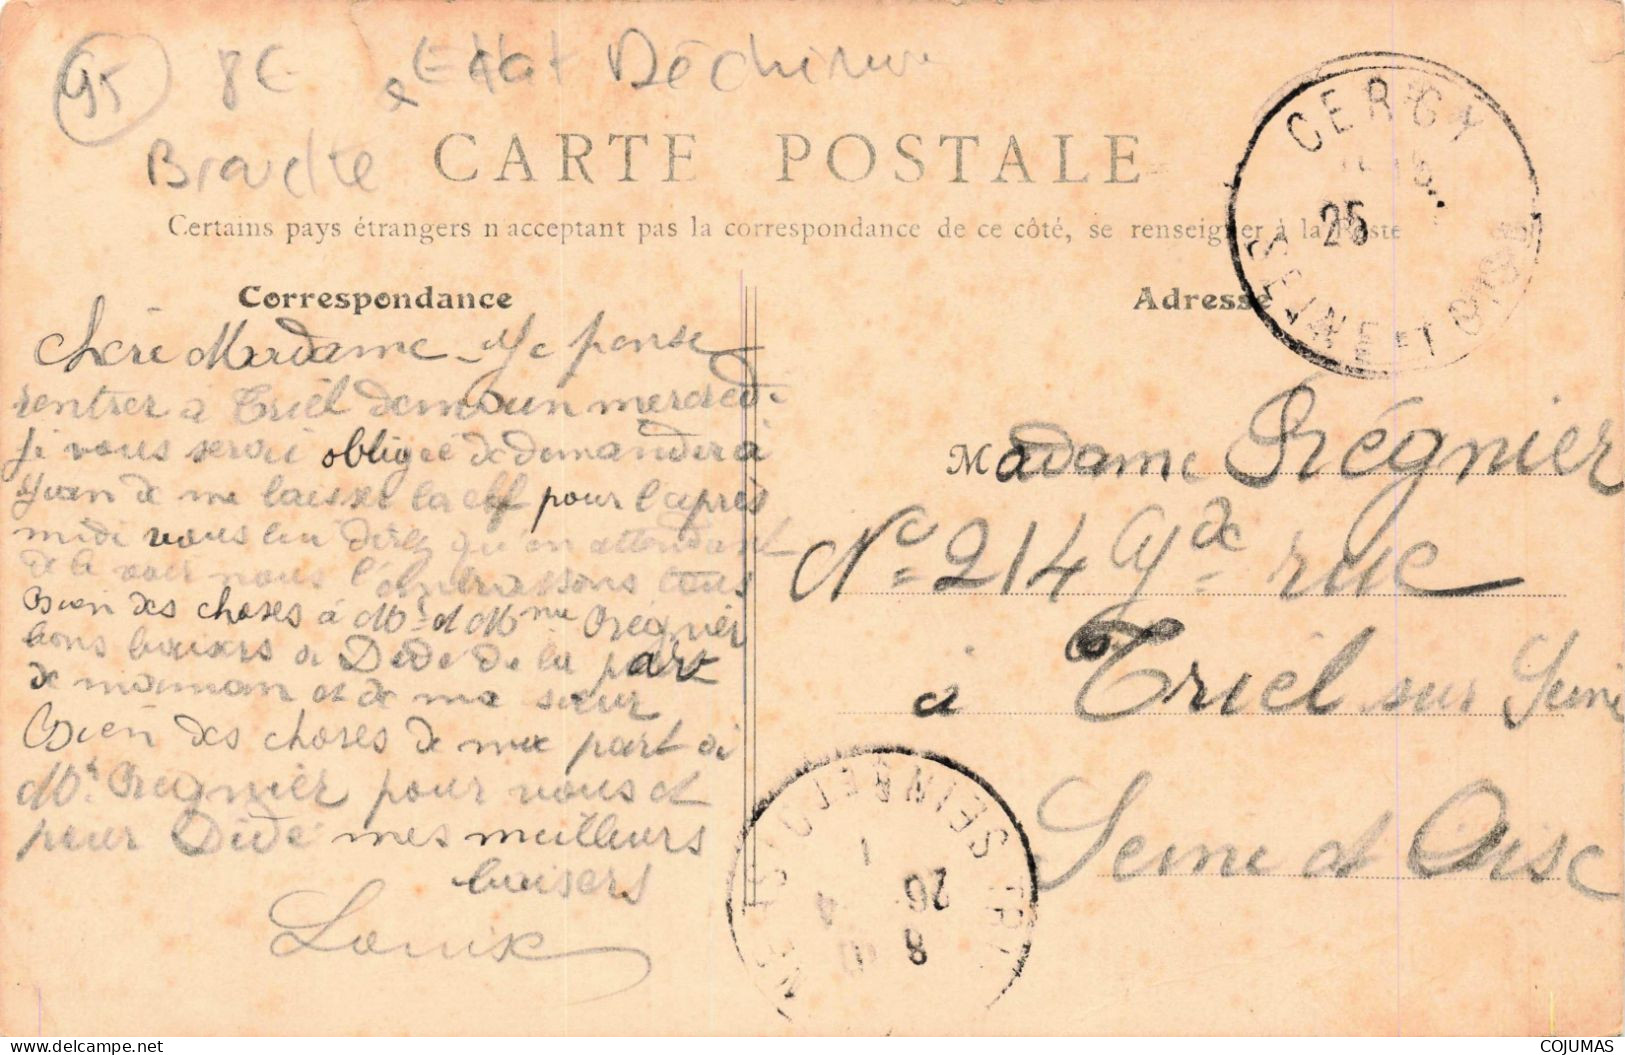 95 8€ Etat Déchirure
CARTE POSTALE
Certains pays étrangers n'acceptant pas la correspondance de ce côté, se renseigner à la Poste
CERGY
25
SEINE-ET-OISE
Correspondance
Adresse
Chère Madame - Je pense
rentrer à Triel demain mercredi
je vous serai obligée de demander à
Yvan de me laisser la clef pour l'après
midi vous lui direz qu'en attendant
de le voir nous l'embrassons tous
Bien des choses à Mr et Mme Prégnier
bons baisers à Dédé de la part
de maman et de ma sœur
Bien des choses de ma part à
Mr Prégnier pour vous et
pour Dédé mes meilleurs
baisers
Louise
Madame Prégnier
No 214 Gde rue
à Triel sur Seine
Seine et Oise
26
8
www.delcampe.net
COJUMAS